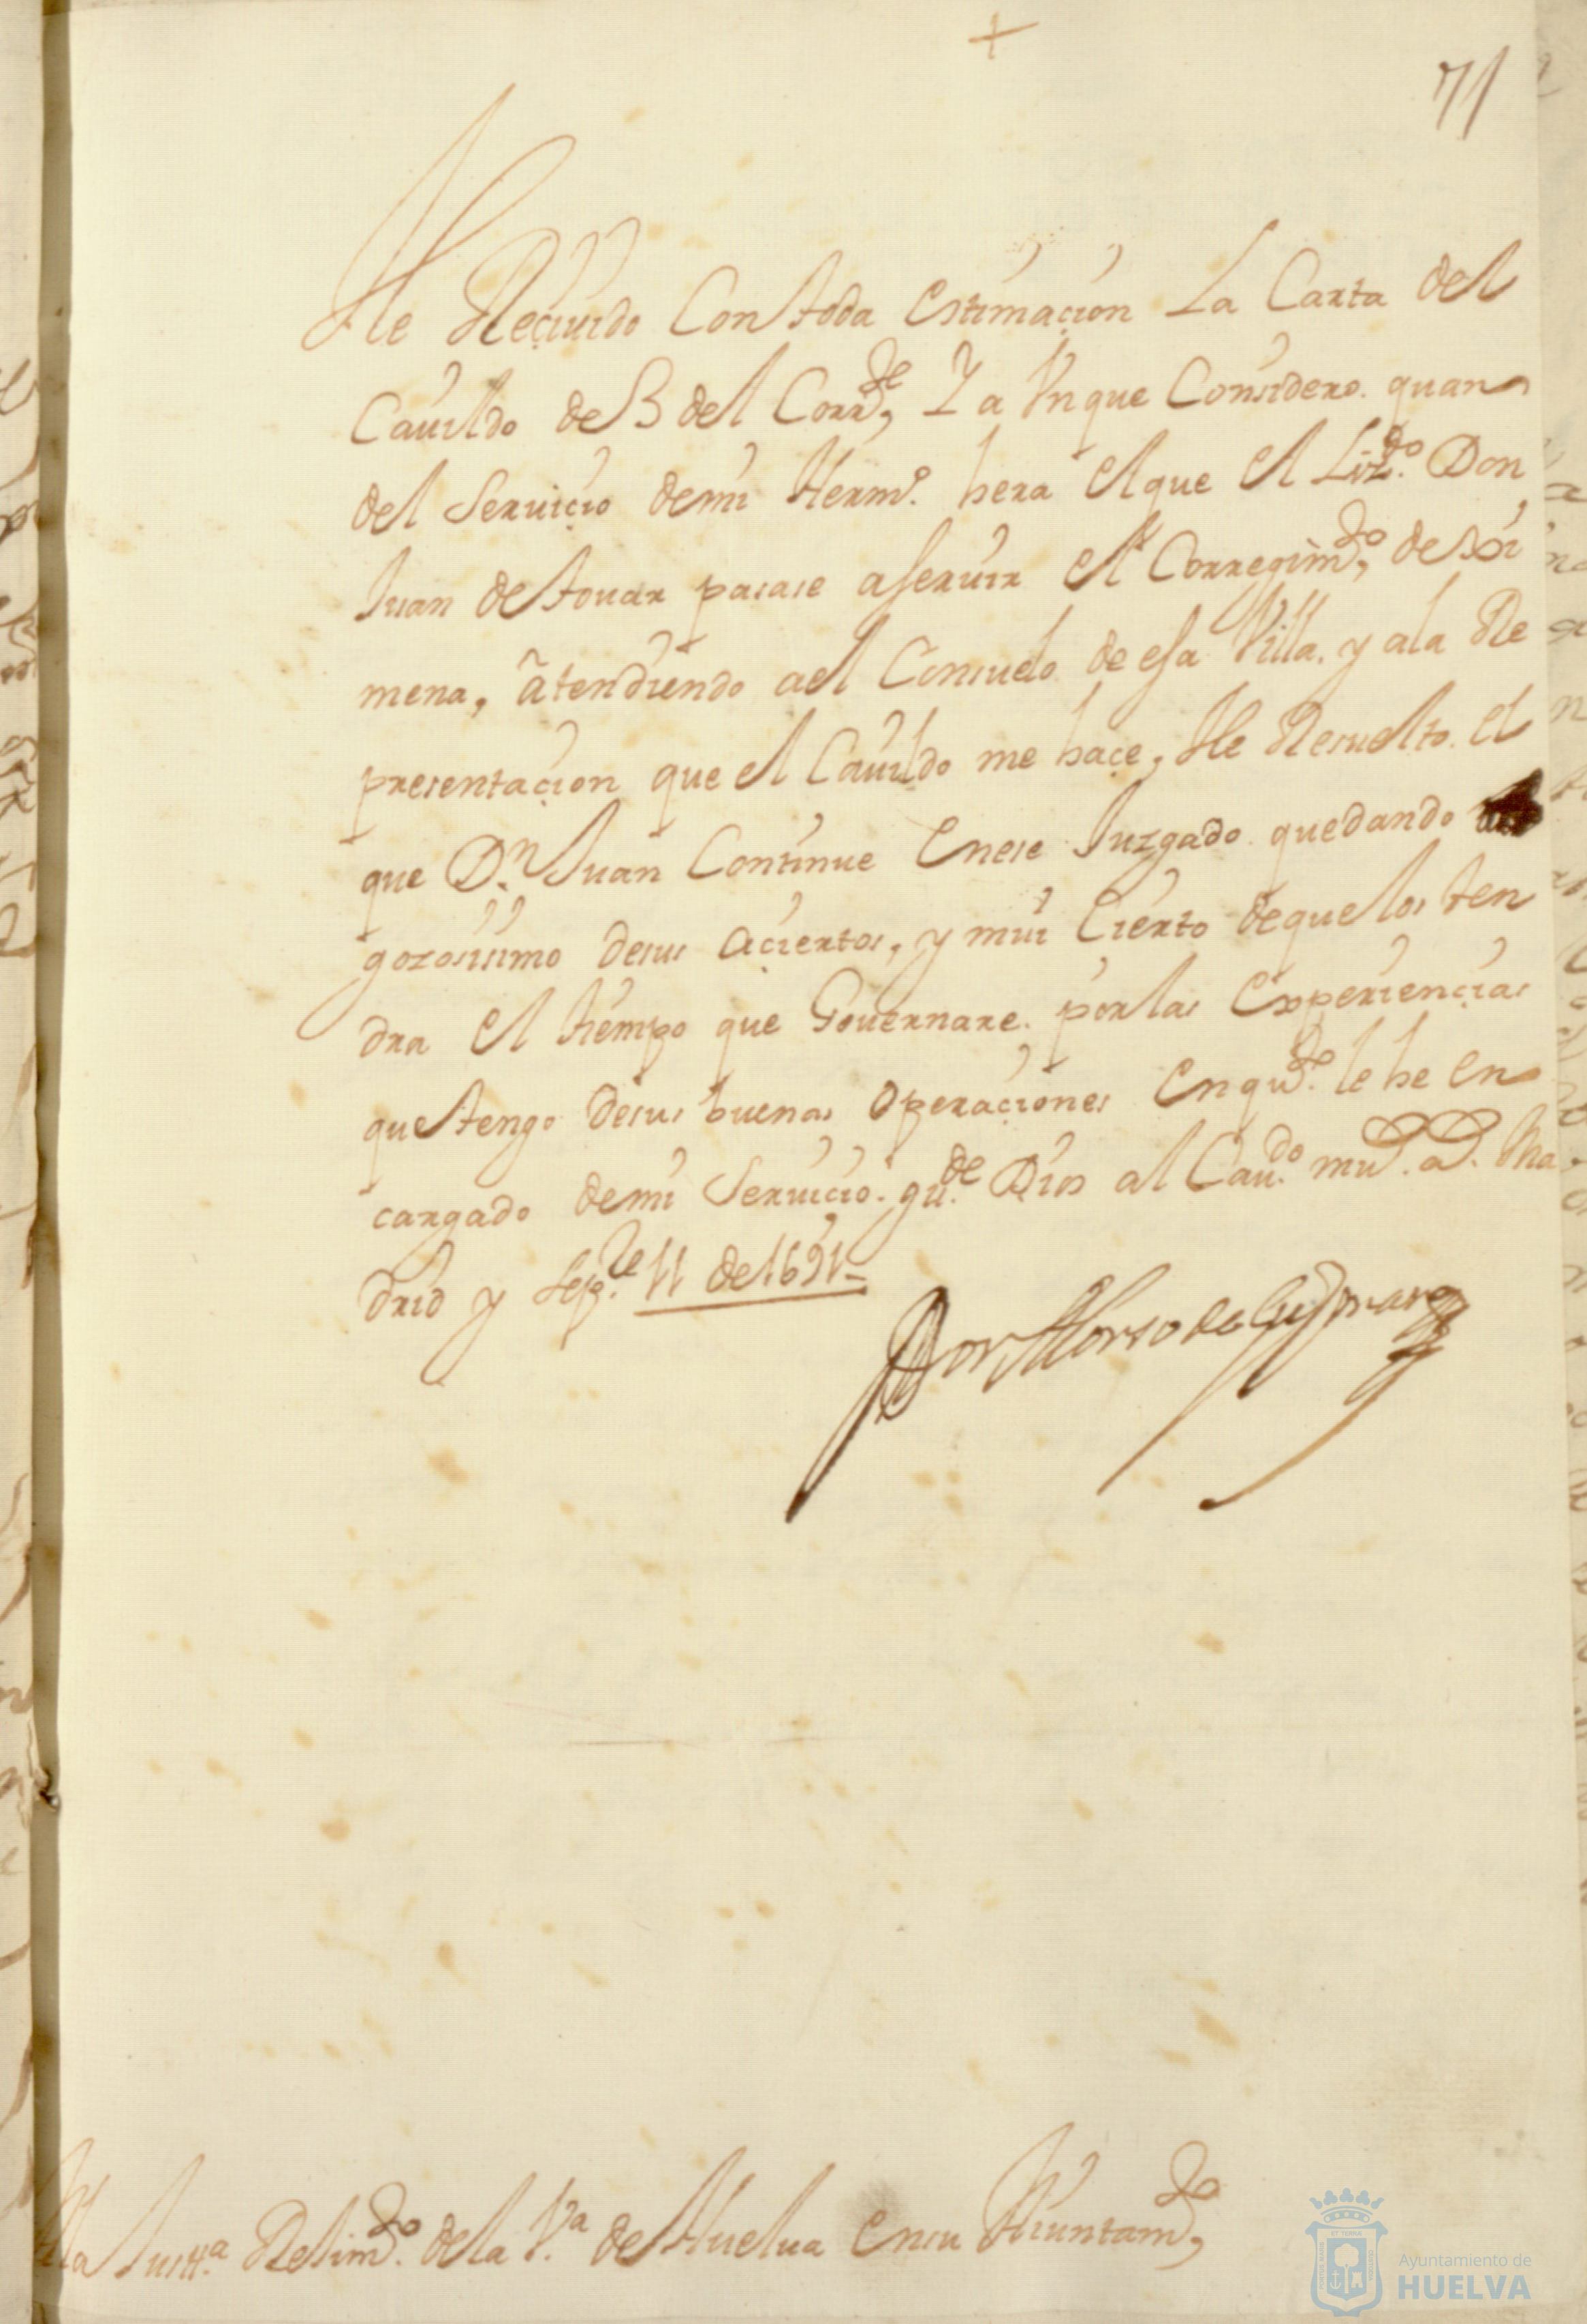 +
71
He Reçiuido Con toda estimaçion La Carta del
Cauildo de 3 del Corr.te, Y a Vnque Considero quan
del Seruiçio demi Herm.o hera el que el Liz.do Don
Juan de touar pasase a seruir el Corregim.to, de Xi
mena, atendiendo a el Consuelo de esa Villa, y a la Re
presentaçion que el Cauildo me haçe, He Resuelto el
que D.n Juan Continue en ese Juzgado quedando
gozosisimo de sus açiertos, y mui Cierto de que los ten
dra el tiempo que Gouernare por las experiençias
que tengo de sus buenas operaçiones en que le he en
cargado de mi Seruiçio. gu.de Dios al Cau.do m.s a.s Ma
drid y Sep.re 11 de 1691=
Don Alonso de Guzman
A la Justt.a Rejim.to de la V.a de Huelua en su Aiuntam.to,
Ayuntamiento de
HUELVA